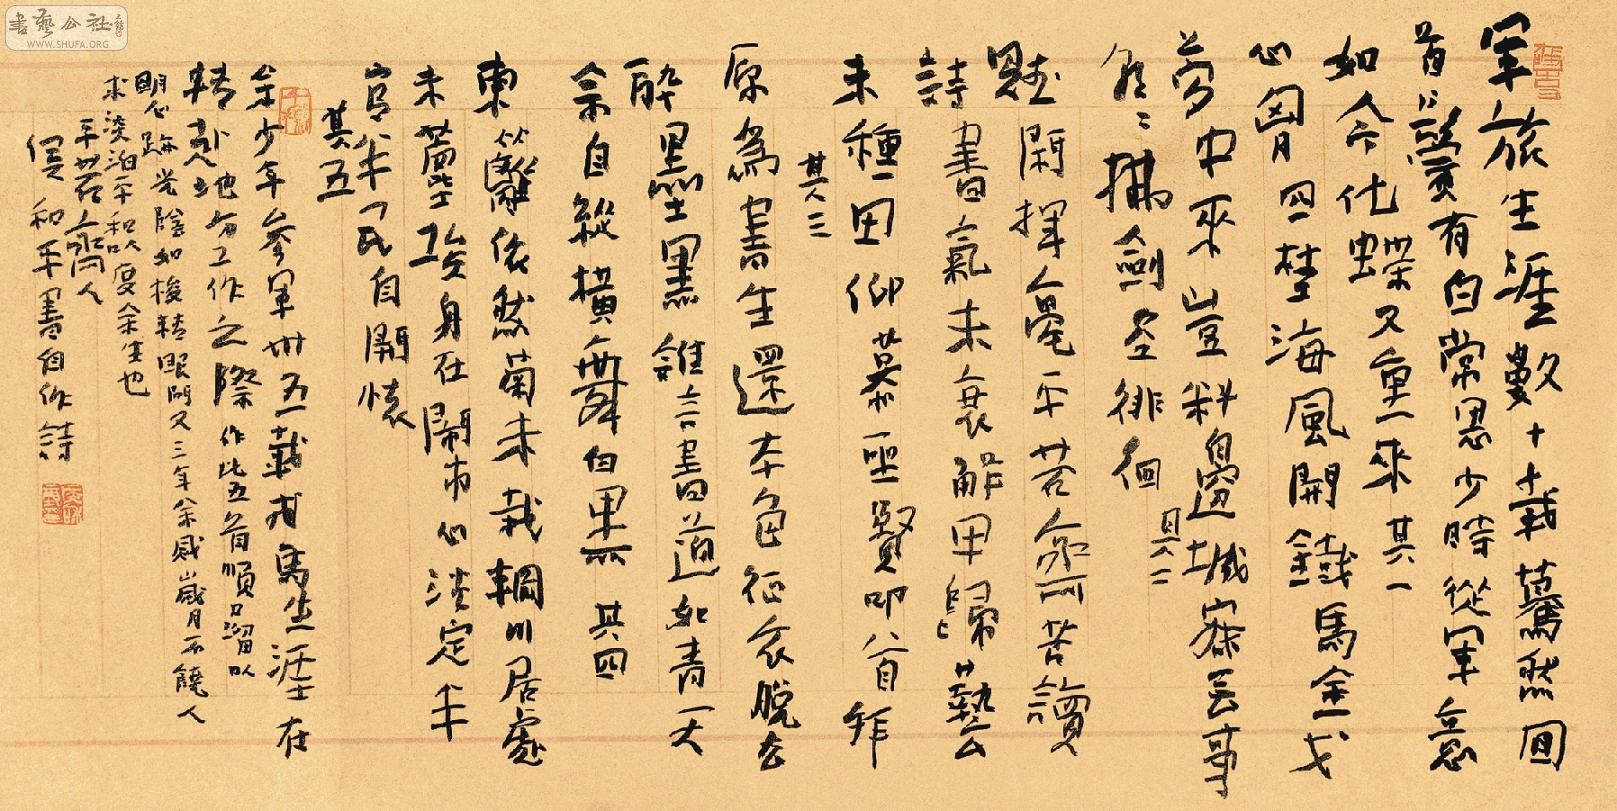 軍旅生涯數十載驀然回
首鬢有白常思少時從軍意
如今化蝶又重來其一
心胸四楚海風開鐵馬金戈
夢中來豈料邊城寂無事
撫劍空徘徊其二
閑揮毫平苦奈何苦讀
詩書氣未衰解甲歸藝
未種田仰慕聖賢叩首拜
其三
原為書生還本色征衣脫去
醉墨黑誰言書道如青天
余自縱橫舞白黑其四
東籬依然菊未栽輞川居處
未蓋身在鬧市心淡定半
官半民自開懷
其五
余少年參軍卅五載戎馬生涯在
轉地方工作之際作此五首順口溜以
明心跡光陰如梭轉眼間又三年余感歲月不饒人
求淡泊平和以度余生也
平苦齋人
侯和平書自作詩
書藝公社
WWW.SHUFA.ORG